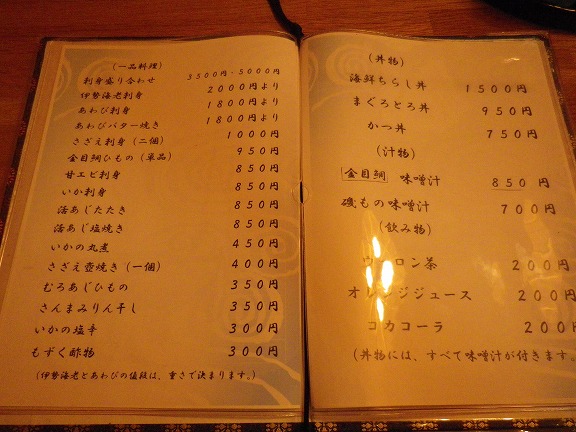 (一品料理)
刺身盛り合わせ 3500円・5000円
伊勢海老刺身 2000円より
あわび刺身 1800円より
あわびバター焼き 1800円より
さざえ刺身(二個) 1000円
金目鯛ひもの(単品) 950円
甘エビ刺身 850円
いか刺身 850円
活あじたたき 850円
活あじ塩焼き 850円
いかの丸煮 450円
さざえ壺焼き(一個) 400円
むろあじひもの 350円
さんまみりん干し 350円
いかの塩辛 300円
もずく酢物 300円
(伊勢海老とあわびの値段は、重さで決まります。)
(丼物)
海鮮ちらし丼 1500円
まぐろとろ丼 950円
かつ丼 750円
(汁物)
金目鯛 味噌汁 850円
磯もの味噌汁 700円
(飲み物)
ウーロン茶 200円
オレンジジュース 200円
コカコーラ 200円
(丼物には、すべて味噌汁が付きます。